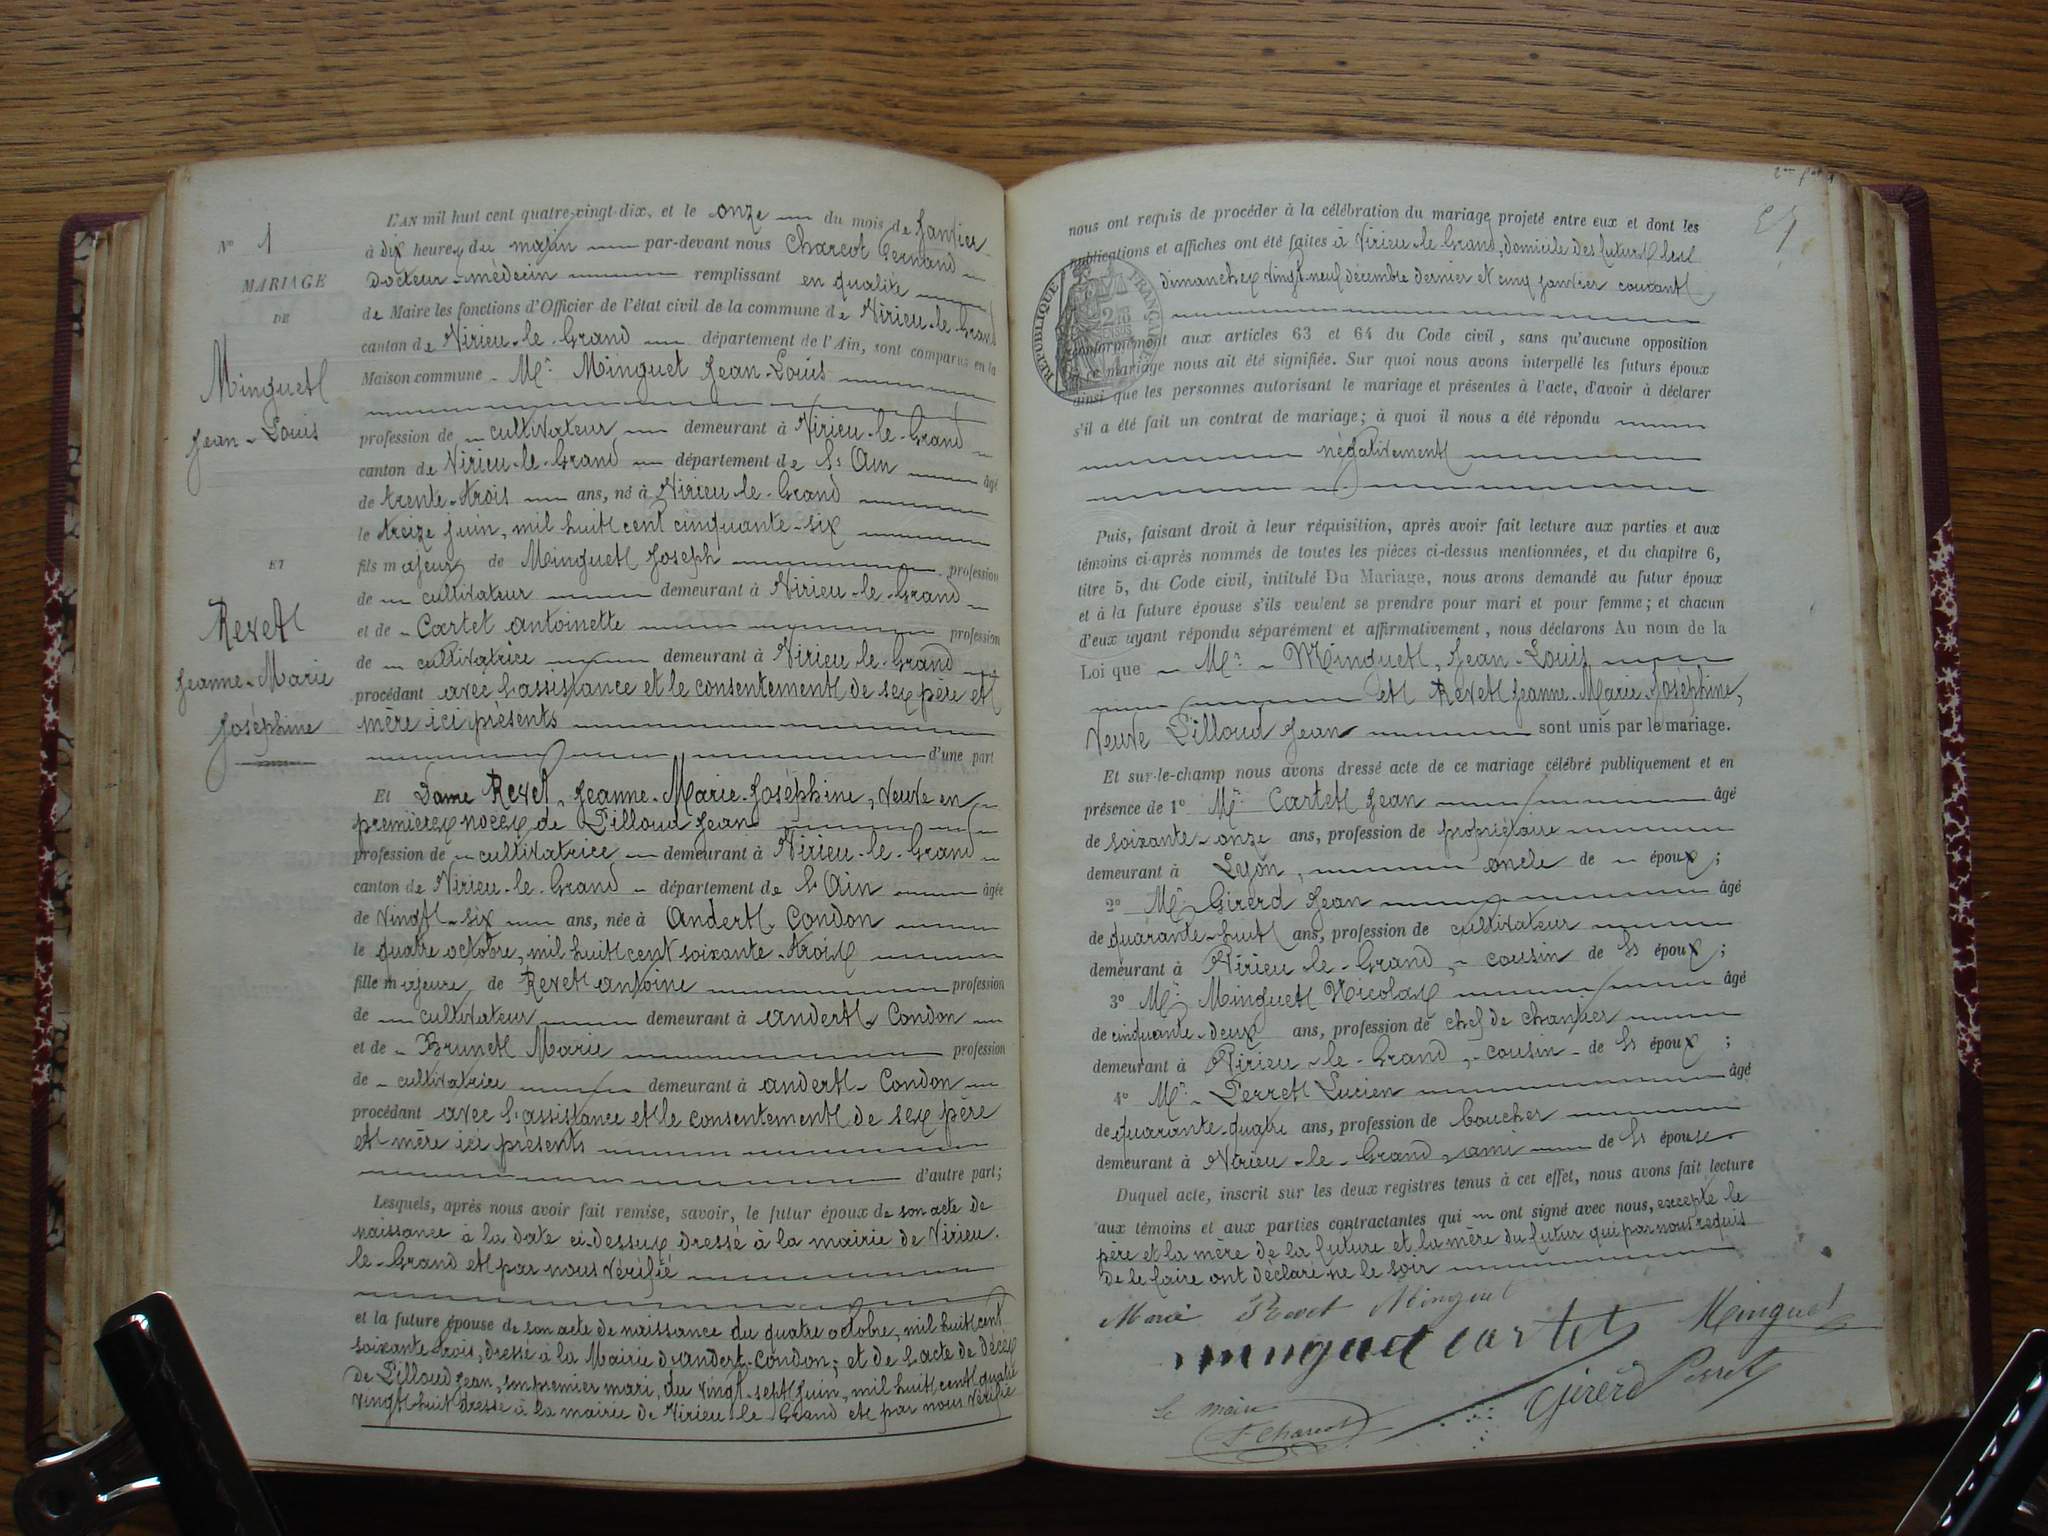 L'AN mil huit cent quatre-vingt-dix, et le onze du mois de Janvier
N° 1
à dix heures du matin par-devant nous Charcot Fernand
MARIAGE
Docteur-médecin remplissant en qualité
DE
de Maire les fonctions d'Officier de l'état civil de la commune de Virieu-le-Grand
canton de Virieu-le-Grand département de l'Ain, sont comparus en la
Minguet
Maison commune - Mr Minguet Jean-Louis
Jean-Louis
profession de cultivateur demeurant à Virieu-le-Grand
canton de Virieu-le-Grand département de l'Ain âgé
de trente-trois ans, né à Virieu-le-Grand
le treize juin, mil huit cent cinquante-six
ET
fils majeur de Minguet Joseph profession
de cultivateur demeurant à Virieu-le-Grand
Revet
et de Cartet antoinette profession
de cultivatrice demeurant à Virieu-le-Grand
Jeanne-Marie
procédant avec l'assistance et le consentement de ses père et
Joséphine
mère ici présents
d'une part
Et Dame Revet, Jeanne-Marie-Joséphine, Veuve en
premières noces de Pilloud Jean
profession de cultivatrice demeurant à Virieu-le-Grand
canton de Virieu-le-Grand département de l'Ain âgée
de vingt-six ans, née à andert-Condon
le quatre octobre, mil huit cent soixante-trois
fille majeure, de Revet antoine profession
de cultivateur demeurant à andert-Condon
et de Brunet Marie profession
de cultivatrice demeurant à andert-Condon
procédant avec l'assistance et le consentement de ses père
et mère ici présents
d'autre part;
Lesquels, après nous avoir fait remise, savoir, le futur époux de son acte de
naissance à la date ci-dessus dressé à la mairie de Virieu-
le-Grand et par nous vérifié
et la future épouse de son acte de naissance du quatre octobre, mil huit cent
soixante-trois, dressé à la Mairie d'andert-Condon; et de l'acte de décès
de Pilloud Jean, son premier mari, du vingt-sept juin, mil huit cent quatre
vingt-huit dressé à la mairie de Virieu-le-Grand et par nous vérifié
nous ont requis de procéder à la célébration du mariage projeté entre eux et dont les
publications et affiches ont été faites à Virieu-le-Grand, domicile des futurs les
dimanches vingt-neuf décembre dernier et cinq janvier courant
RÉPUBLIQUE FRANÇAISE
conformément aux articles 63 et 64 du Code civil, sans qu'aucune opposition
à ce mariage nous ait été signifiée. Sur quoi nous avons interpellé les futurs époux
ainsi que les personnes autorisant le mariage et présentes à l'acte, d'avoir à déclarer
s'il a été fait un contrat de mariage; à quoi il nous a été répondu
négativement
Puis, faisant droit à leur réquisition, après avoir fait lecture aux parties et aux
témoins ci-après nommés de toutes les pièces ci-dessus mentionnées, et du chapitre 6,
titre 5, du Code civil, intitulé Du Mariage, nous avons demandé au futur époux
et à la future épouse s'ils veulent se prendre pour mari et pour femme; et chacun
d'eux ayant répondu séparément et affirmativement, nous déclarons Au nom de la
Loi que Mr Minguet, Jean-Louis
et Revet Jeanne-Marie-Joséphine,
Veuve Pilloud Jean sont unis par le mariage.
Et sur-le-champ nous avons dressé acte de ce mariage célébré publiquement et en
présence de 1° Mr Cartet Jean âgé
de soixante-onze ans, profession de propriétaire
demeurant à oncle de époux;
2° Mr Girerd Jean âgé
de quarante-huit ans, profession de cultivateur
demeurant à Virieu-le-Grand, cousin de l' époux;
3° Mr Minguet Nicolas âgé
de cinquante-deux ans, profession de chef de chantier
demeurant à Virieu-le-Grand, cousin de l' époux;
4° Mr Perret Lucien âgé
de quarante-quatre ans, profession de boucher
demeurant à Virieu-le-Grand, ami de l' épouse
Duquel acte, inscrit sur les deux registres tenus à cet effet, nous avons fait lecture
aux témoins et aux parties contractantes qui ont signé avec nous, excepté le
père et la mère de la future et la mère du futur qui par nous requis
de le faire ont déclaré ne le savoir
Marie Revet Minguet
minguet cartet Minguet
Girerd Perret
le maire
F. Charcot